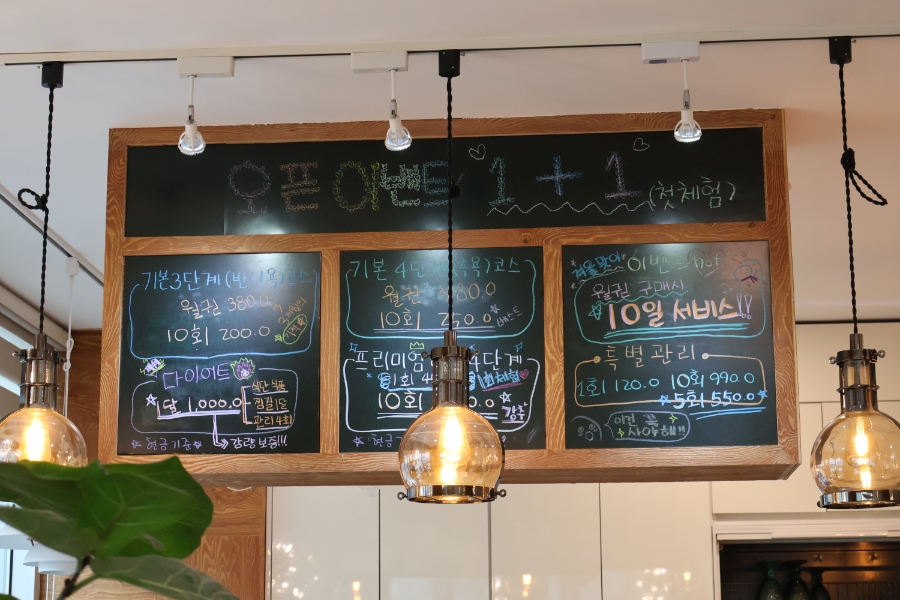 오픈이벤트 1+1 (첫체험)
기본3단계(반신욕)코스
월권 380.0
10회 200.0
다이어트
1달 1,000.0
식단
찜질1달
관리4회
*현금기준* 감량보증!!!
기본 4단 코스
월권
10회
프리미엄 단계
1회 체험
10회 .0
강추
*현금
겨울맞이 이벤트 hot
월권 구매시
10일 서비스!!
특별관리
1회 120.0 10회 990.0
5회 550.0
이건 꼭
사야해!!